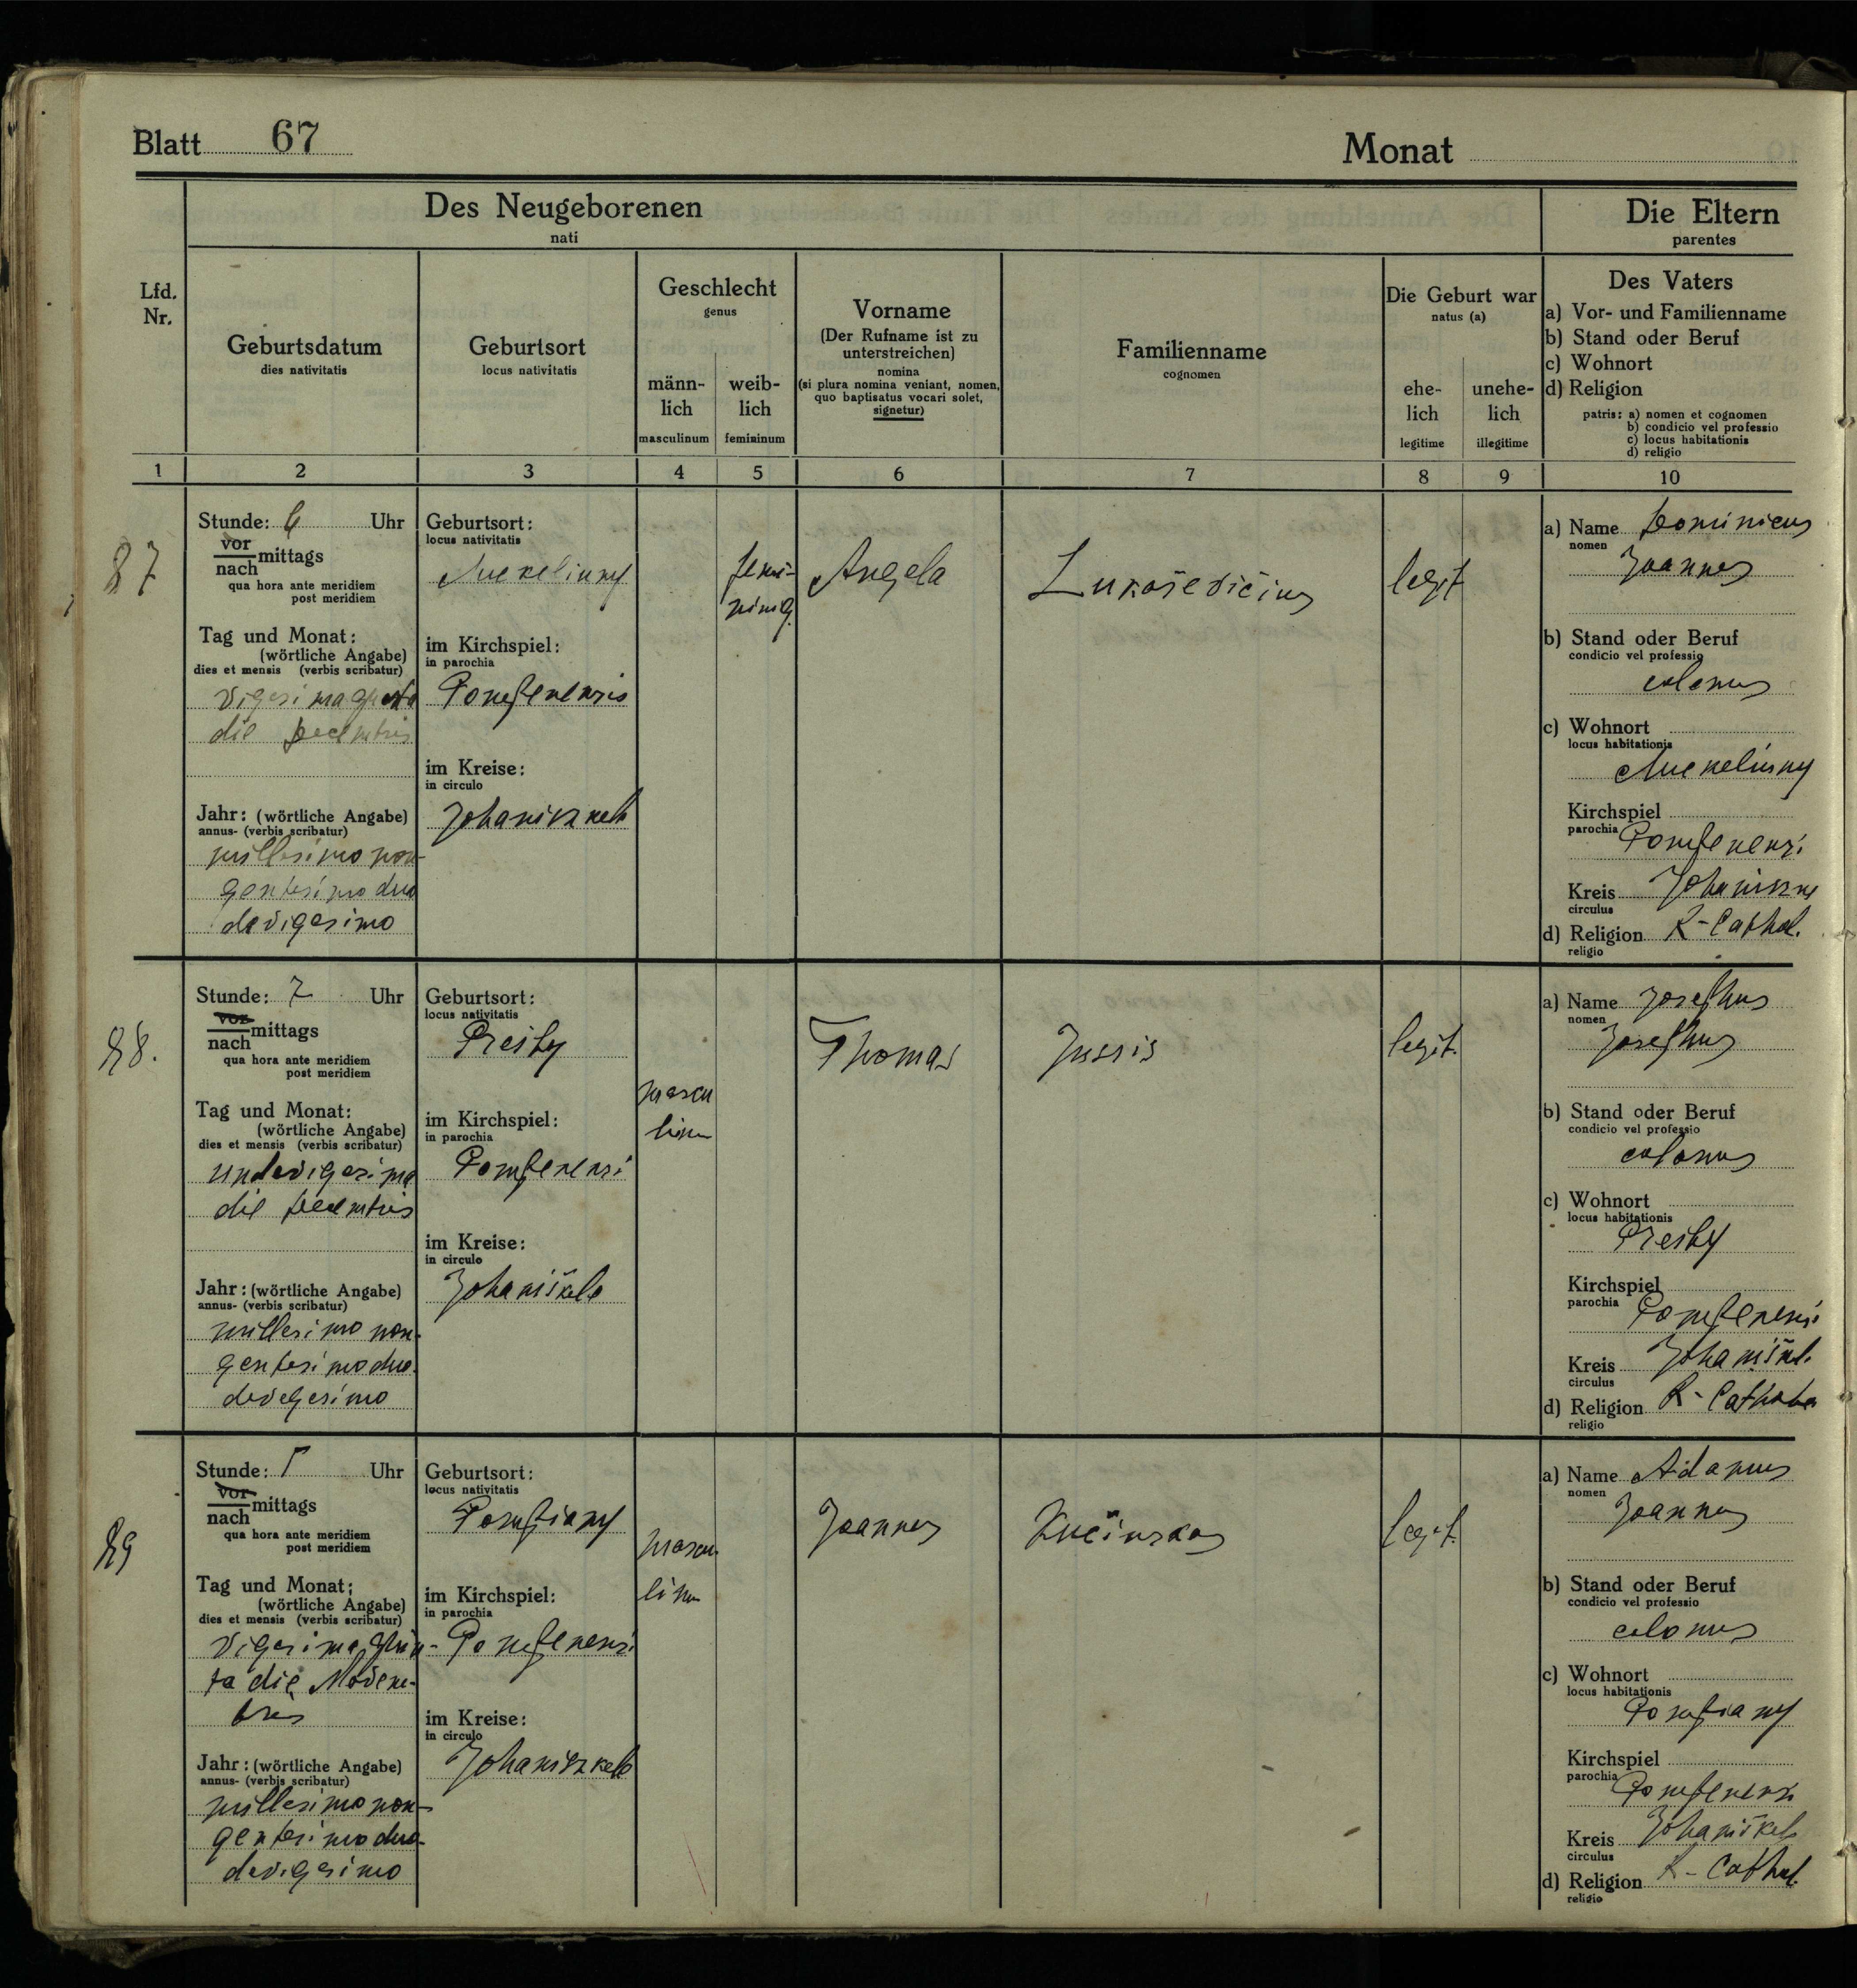 Blatt 67
Monat
Des Neugeborenen
nati
Die Eltern
parentes
Lfd.
Nr.
Geburtsdatum
dies nativitatis
Geburtsort
locus nativitatis
Geschlecht
genus
männ-
lich
masculinum
weib-
lich
femininum
Vorname
(Der Rufname ist zu
unterstreichen)
nomina
(si plura nomina veniant, nomen,
quo baptisatus vocari solet,
signetur)
Familienname
cognomen
Die Geburt war
natus (a)
ehe-
lich
legitime
unehe-
lich
illegitime
Des Vaters
a) Vor- und Familienname
b) Stand oder Beruf
c) Wohnort
d) Religion
patris: a) nomen et cognomen
b) condicio vel professio
c) locus habitationis
d) religio
1 2 3 4 5 6 7 8 9 10
87
Stunde: 6 Uhr
vor
nach mittags
qua hora ante meridiem
post meridiem
Tag und Monat:
(wörtliche Angabe)
dies et mensis (verbis scribatur)
die Decembris
Jahr: (wörtliche Angabe)
annus- (verbis scribatur)
millesimo non-
gentesimo duo
devigesimo
Geburtsort:
locus nativitatis
im Kirchspiel:
in parochia
im Kreise:
in circulo
Johaniszkele
femi-
ning.
Angela
Lukoševičius
legit
a) Name Dominicus
nomen
Joannes
b) Stand oder Beruf
condicio vel professio
colonus
c) Wohnort
locus habitationis
Kirchspiel
parochia
Kreis
circulus
d) Religion R-Cathol.
religio
88.
Stunde: 7 Uhr
vor
nach mittags
qua hora ante meridiem
post meridiem
Tag und Monat:
(wörtliche Angabe)
dies et mensis (verbis scribatur)
undevigesima
die Decembris
Jahr: (wörtliche Angabe)
annus- (verbis scribatur)
millesimo non-
gentesimo duo-
devegesimo
Geburtsort:
locus nativitatis
im Kirchspiel:
in parochia
im Kreise:
in circulo
Johaniškele
mascu
linu
Thomas
Jussis
legit.
a) Name Josephus
nomen
Josephus
b) Stand oder Beruf
condicio vel professio
colonus
c) Wohnort
locus habitationis
Kirchspiel
parochia
Kreis Johaniškl.
circulus
d) Religion
religio
89
Stunde: 5 Uhr
vor
nach mittags
qua hora ante meridiem
post meridiem
Tag und Monat:
(wörtliche Angabe)
dies et mensis (verbis scribatur)
vigesima quin-
ta die Novem-
bris
Jahr: (wörtliche Angabe)
annus- (verbis scribatur)
millesimo non-
gentesimo duo-
devigesimo
Geburtsort:
locus nativitatis
im Kirchspiel:
in parochia
im Kreise:
in circulo
Johaniszkele
mascu.
linu
Joannes
Kučinskas
legit.
a) Name Adamus
nomen
Joannes
b) Stand oder Beruf
condicio vel professio
colonus
c) Wohnort
locus habitationis
Kirchspiel
parochia
Kreis Johaniškele
circulus
d) Religion R-Cathol.
religio